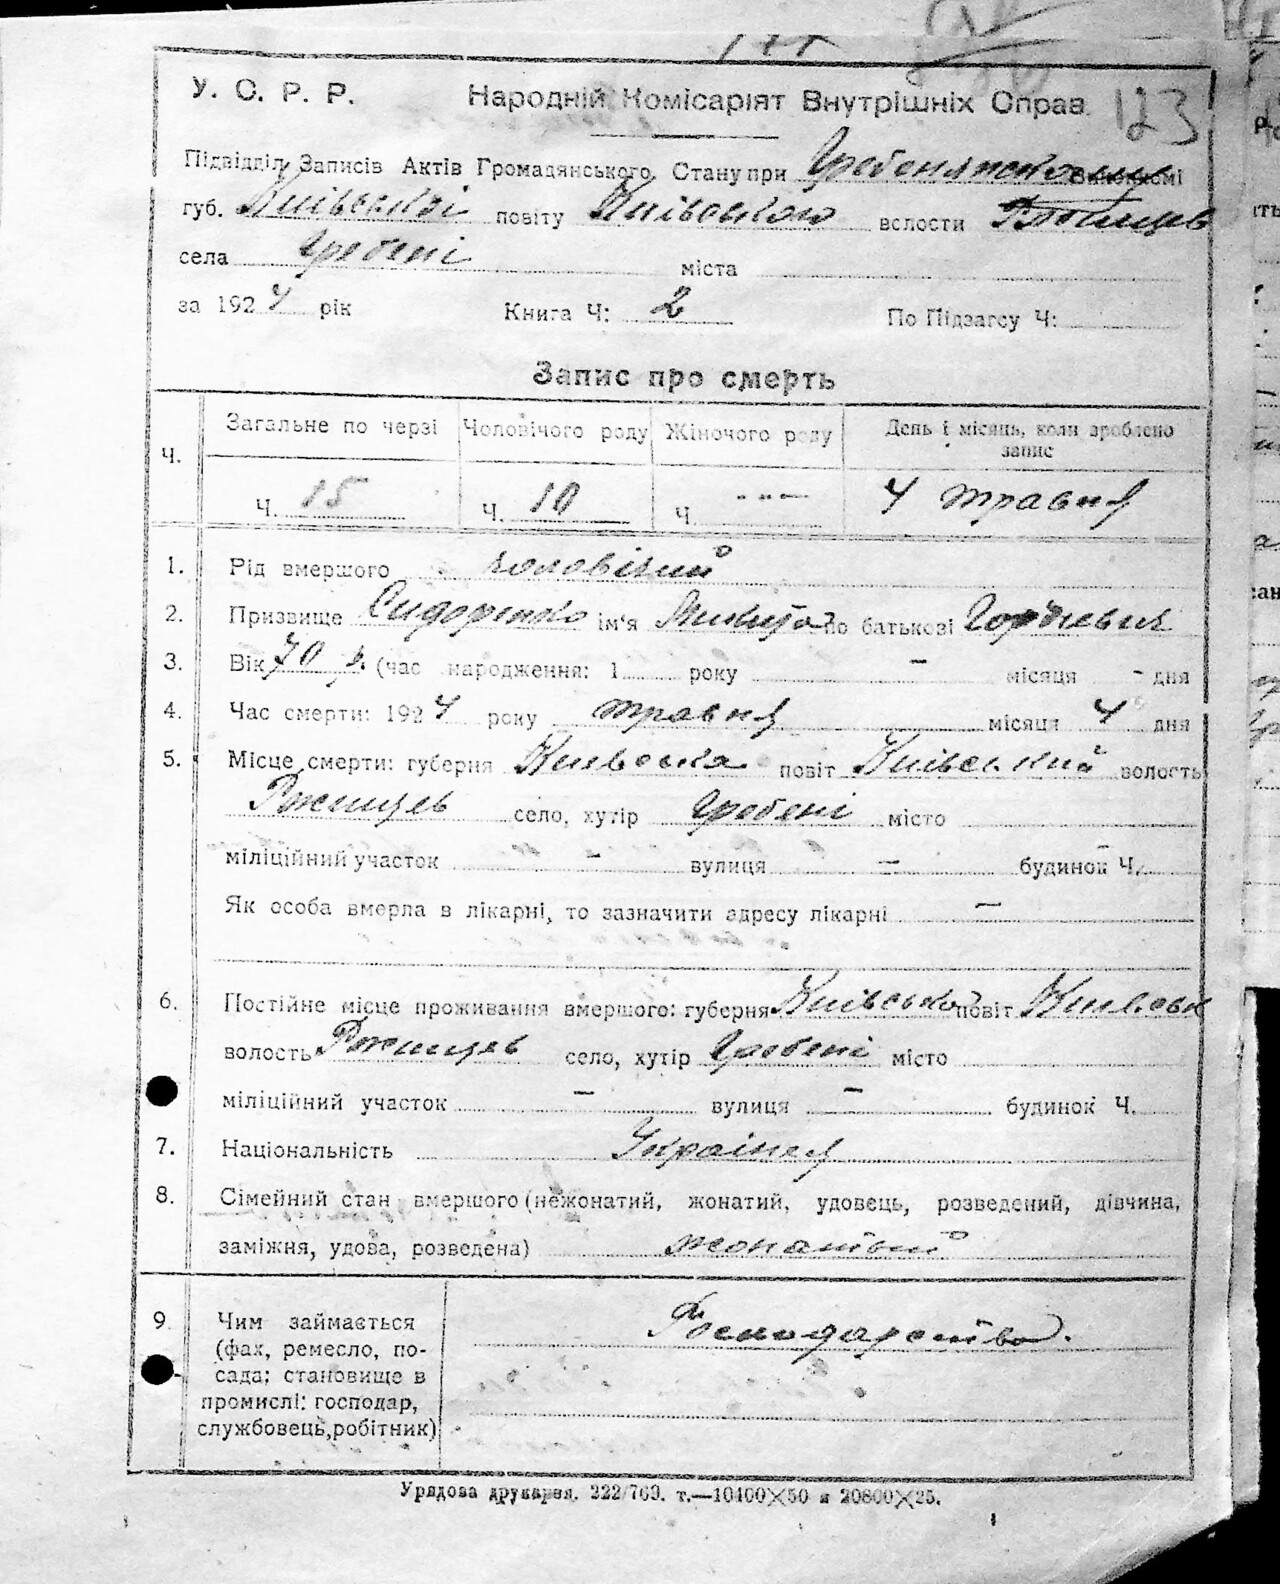 123
У. С. Р. Р. Народній Комісаріят Внутрішніх Справ
Підвідділ Записів Актів Громадянського Стану при
губ. Київській повіту Київського волости
села Гребені міста
за 1924 рік Книга Ч: 2 По Підзагсу Ч:
Запис про смерть
Ч. Загальне по черзі Чоловічого роду Жіночого роду День і місяць, коли зроблено запис
Ч. 15 Ч. 10 Ч. 4 травня
1. Рід вмершого чоловічий
2. Призвище Сидоренко ім'я Микита по батькові Гордієвич
3. Вік 70 р. (час народження: 1 року – місяця - дня
4. Час смерти: 1924 року травня місяця 4 дня
5. Місце смерти: губерня Київська повіт Київський волость
Ржищев село, хутір Гребені місто
міліційний участок – вулиця – будинок Ч. –
Як особа вмерла в лікарні, то зазначити адресу лікарні –
6. Постійне місце проживання вмершого: губерня Київська повіт Київськ
волость Ржищев село, хутір Гребені місто
міліційний участок – вулиця – будинок Ч.
7. Національність Українец
8. Сімейний стан вмершого (нежонатий, жонатий, удовець, розведений, дівчина,
заміжня, удова, розведена) жонатый
9. Чим займається Господарство.
(фах, ремесло, по-
сада; становище в
промислі: господар,
службовець, робітник)
Урядова друкарня. 222/769. т.—10400×50 и 20800×25.